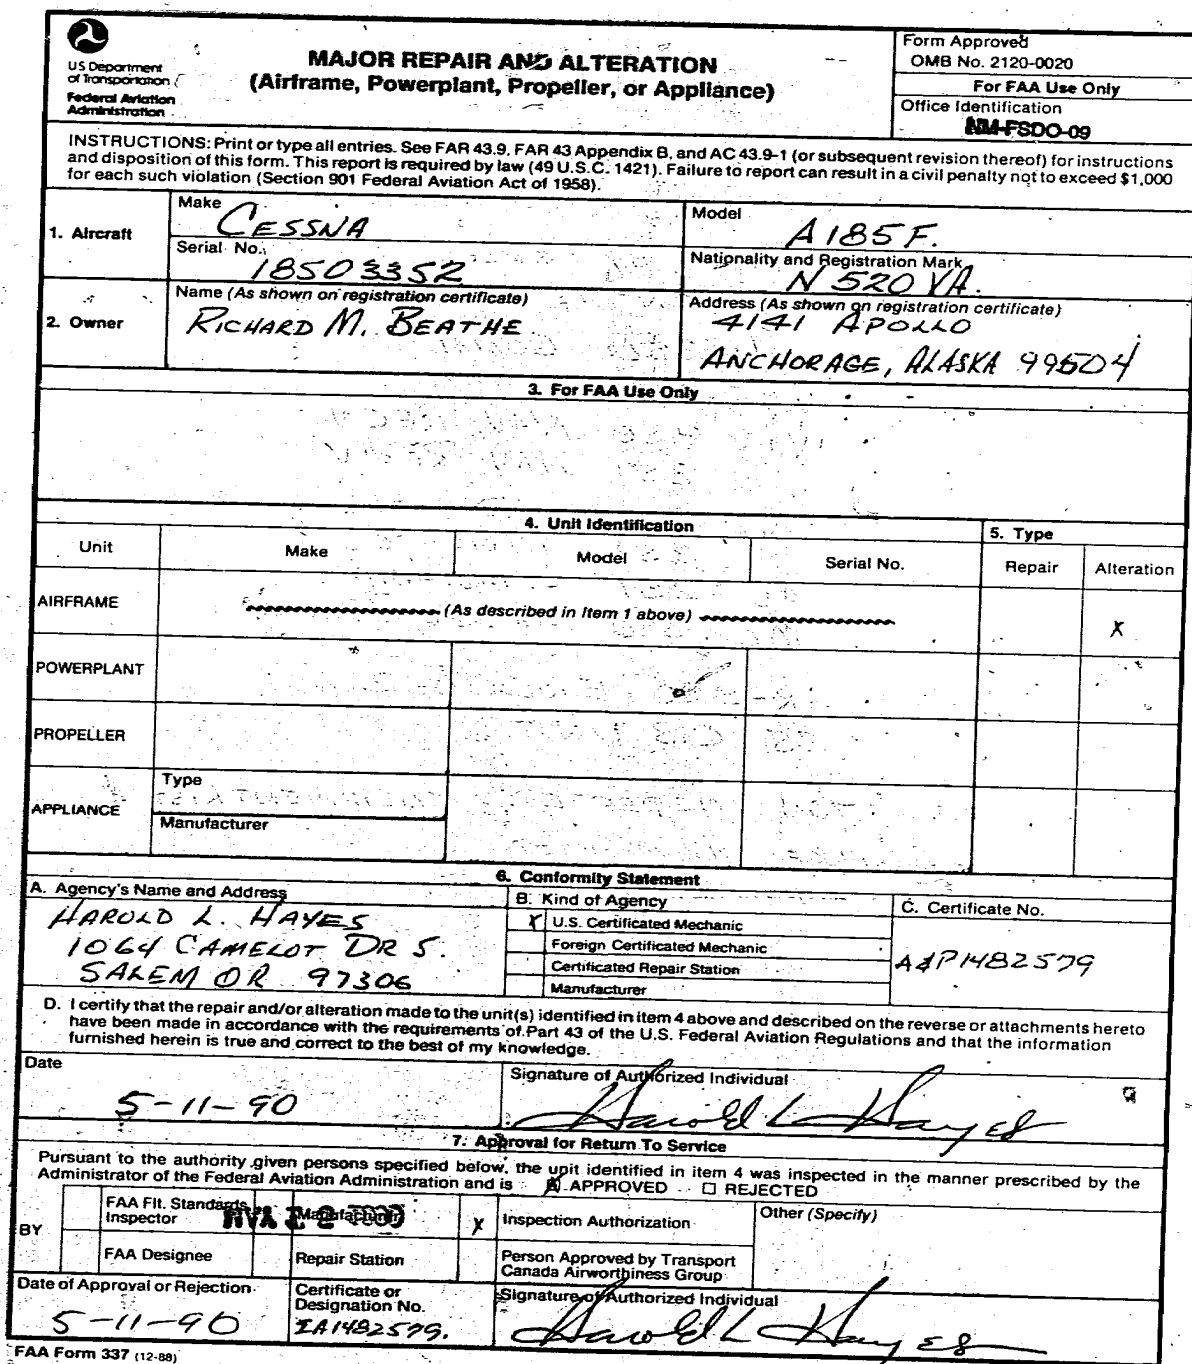 US Department
of Transportation
Federal Aviation
Administration
MAJOR REPAIR AND ALTERATION
(Airframe, Powerplant, Propeller, or Appliance)
Form Approved
OMB No. 2120-0020
For FAA Use Only
Office Identification
NM-FSDO-09
INSTRUCTIONS: Print or type all entries. See FAR 43.9, FAR 43 Appendix B, and AC 43.9-1 (or subsequent revision thereof) for instructions
and disposition of this form. This report is required by law (49 U.S.C. 1421). Failure to report can result in a civil penalty not to exceed $1,000
for each such violation (Section 901 Federal Aviation Act of 1958).
1. Aircraft
Make
CESSNA
Model
A185F.
Serial No.
18503352
Nationality and Registration Mark
N 520 VA.
2. Owner
Name (As shown on registration certificate)
RICHARD M. BEATHE
Address (As shown on registration certificate)
4141 APOLLO
ANCHORAGE, ALASKA 99504
3. For FAA Use Only
4. Unit Identification
5. Type
Unit
Make
Model
Serial No.
Repair
Alteration
AIRFRAME
(As described in Item 1 above)
X
POWERPLANT
PROPELLER
APPLIANCE
Type
Manufacturer
6. Conformity Statement
A. Agency's Name and Address
HAROLD L. HAYES
1064 CAMELOT DR S.
SALEM OR 97306
B. Kind of Agency
X U.S. Certificated Mechanic
Foreign Certificated Mechanic
Certificated Repair Station
Manufacturer
C. Certificate No.
A&P1482579
D. I certify that the repair and/or alteration made to the unit(s) identified in item 4 above and described on the reverse or attachments hereto
have been made in accordance with the requirements of Part 43 of the U.S. Federal Aviation Regulations and that the information
furnished herein is true and correct to the best of my knowledge.
Date
5-11-90
Signature of Authorized Individual
Harold L Hayes
7. Approval for Return To Service
Pursuant to the authority given persons specified below, the unit identified in item 4 was inspected in the manner prescribed by the
Administrator of the Federal Aviation Administration and is ☒ APPROVED ☐ REJECTED
BY
FAA Flt. Standards
Inspector
Manufacturer
X Inspection Authorization
Other (Specify)
FAA Designee
Repair Station
Person Approved by Transport
Canada Airworthiness Group
Date of Approval or Rejection
5-11-90
Certificate or
Designation No.
IA1482579.
Signature of Authorized Individual
Harold L Hayes
FAA Form 337 (12-88)